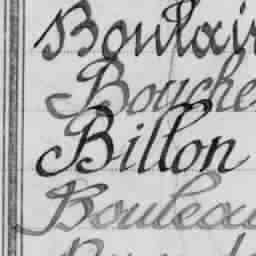 Boulair
Bouche
Billon
Bouleau